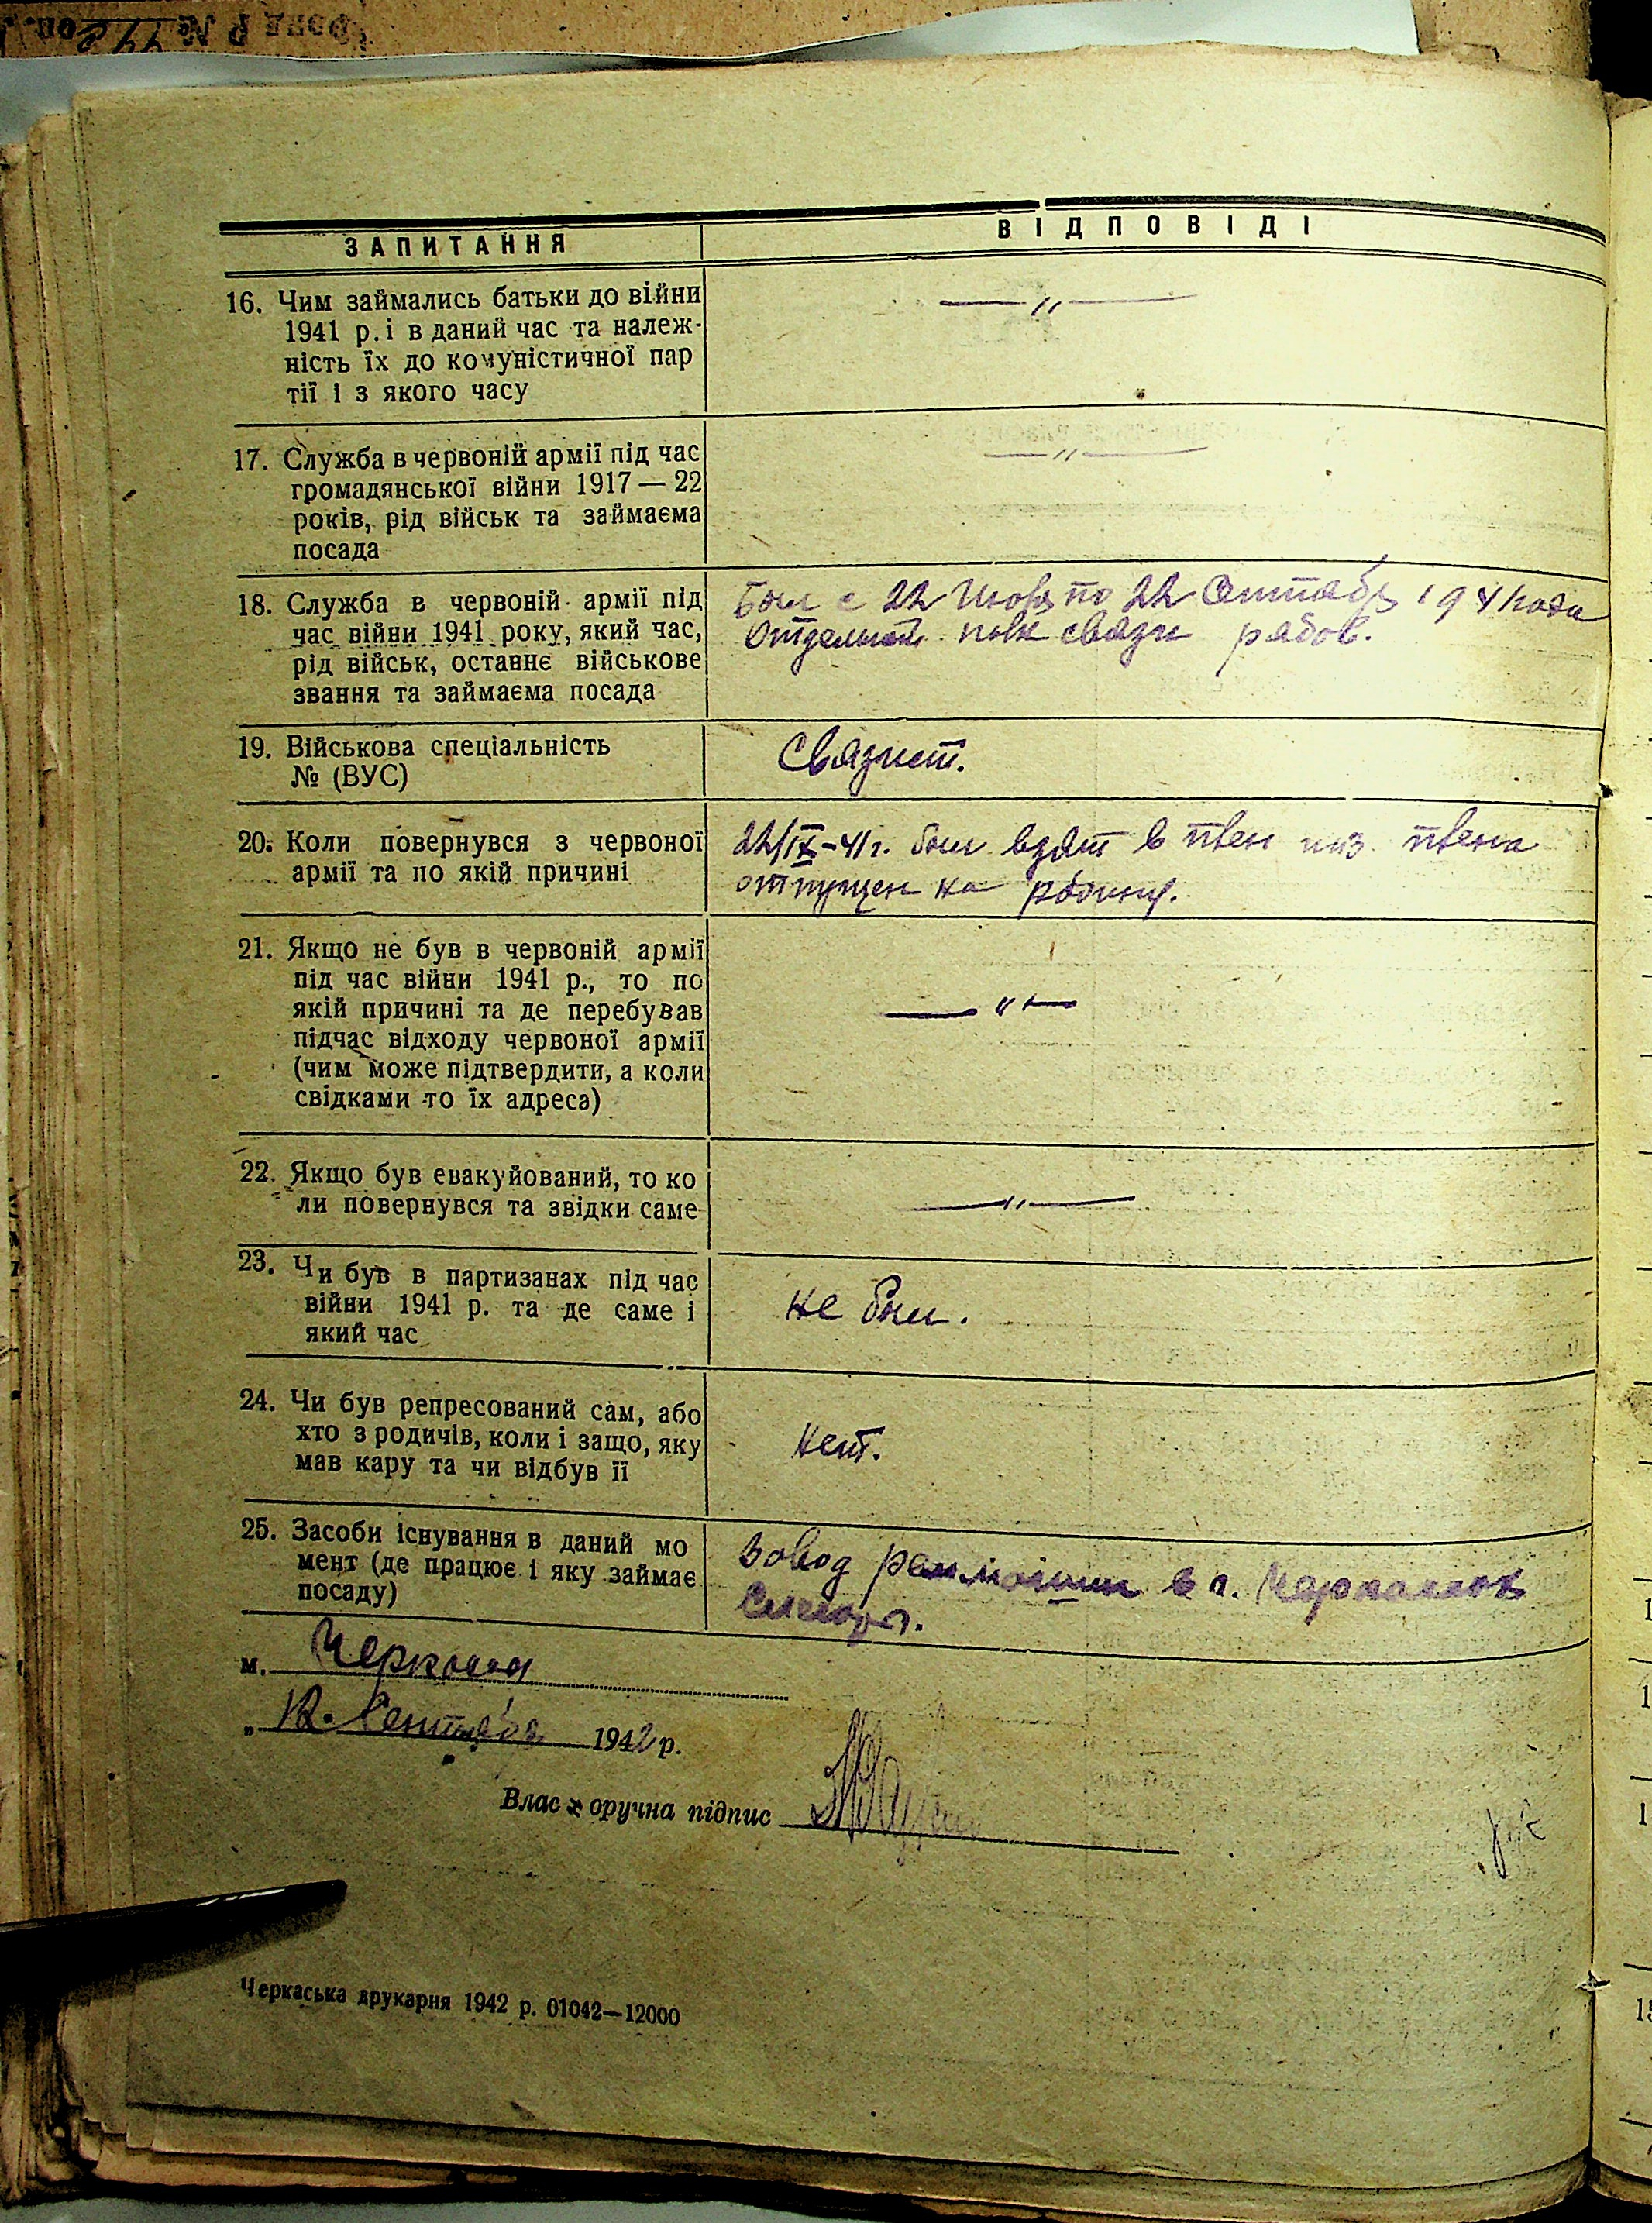 Фонд Р № 44 оп.
ЗАПИТАННЯ
ВІДПОВІДІ
16. Чим займались батьки до війни
1941 р. і в даний час та належ-
ність їх до комуністичної пар
тії і з якого часу
— „ —
17. Служба в червоній армії під час
громадянської війни 1917 — 22
років, рід військ та займаєма
посада
— „ —
18. Служба в червоній армії під
час війни 1941 року, який час,
рід військ, останнє військове
звання та займаєма посада
Был с 22 по 22 1941 года
полк связи рядов.
19. Військова спеціальність
№ (ВУС)
Связист.
20. Коли повернувся з червоної
армії та по якій причині
22/IX-41г. был взят в плен из плена
отпущен на родину.
21. Якщо не був в червоній армії
під час війни 1941 р., то по
якій причині та де перебував
підчас відходу червоної армії
(чим може підтвердити, а коли
свідками то їх адреса)
— „ —
22. Якщо був евакуйований, то ко
ли повернувся та звідки саме
— „ —
23. Чи був в партизанах під час
війни 1941 р. та де саме і
який час
не был.
24. Чи був репресований сам, або
хто з родичів, коли і защо, яку
мав кару та чи відбув її
нет.
25. Засоби існування в даний мо
мент (де працює і яку займає
посаду)
Завод в г.
м. Черкассы
„ 12. Сентября 1942 р.
Влас оручна підпис
Черкаська друкарня 1942 р. 01042—12000